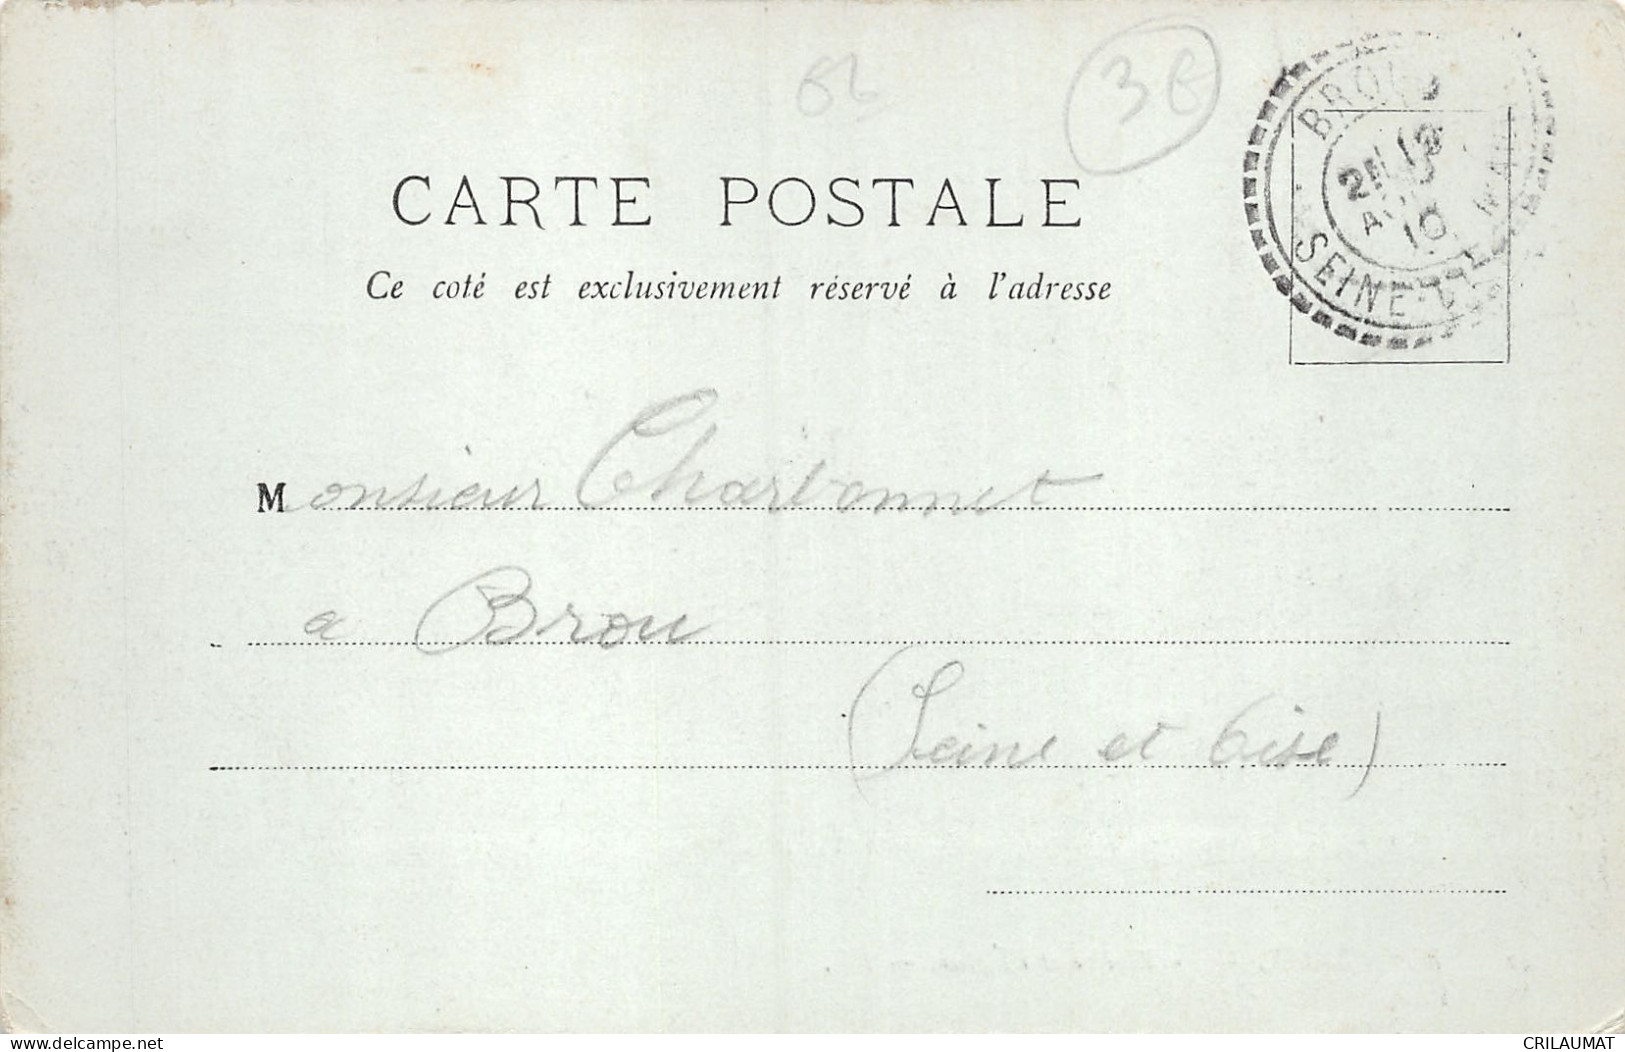 66
3B
BROU
SEINE-ET-MARNE
10
CARTE POSTALE
Ce coté est exclusivement réservé à l'adresse
Monsieur Charbonnet
a Brou
(Seine et Oise)
www.delcampe.net
bmb
CRILAUMAT